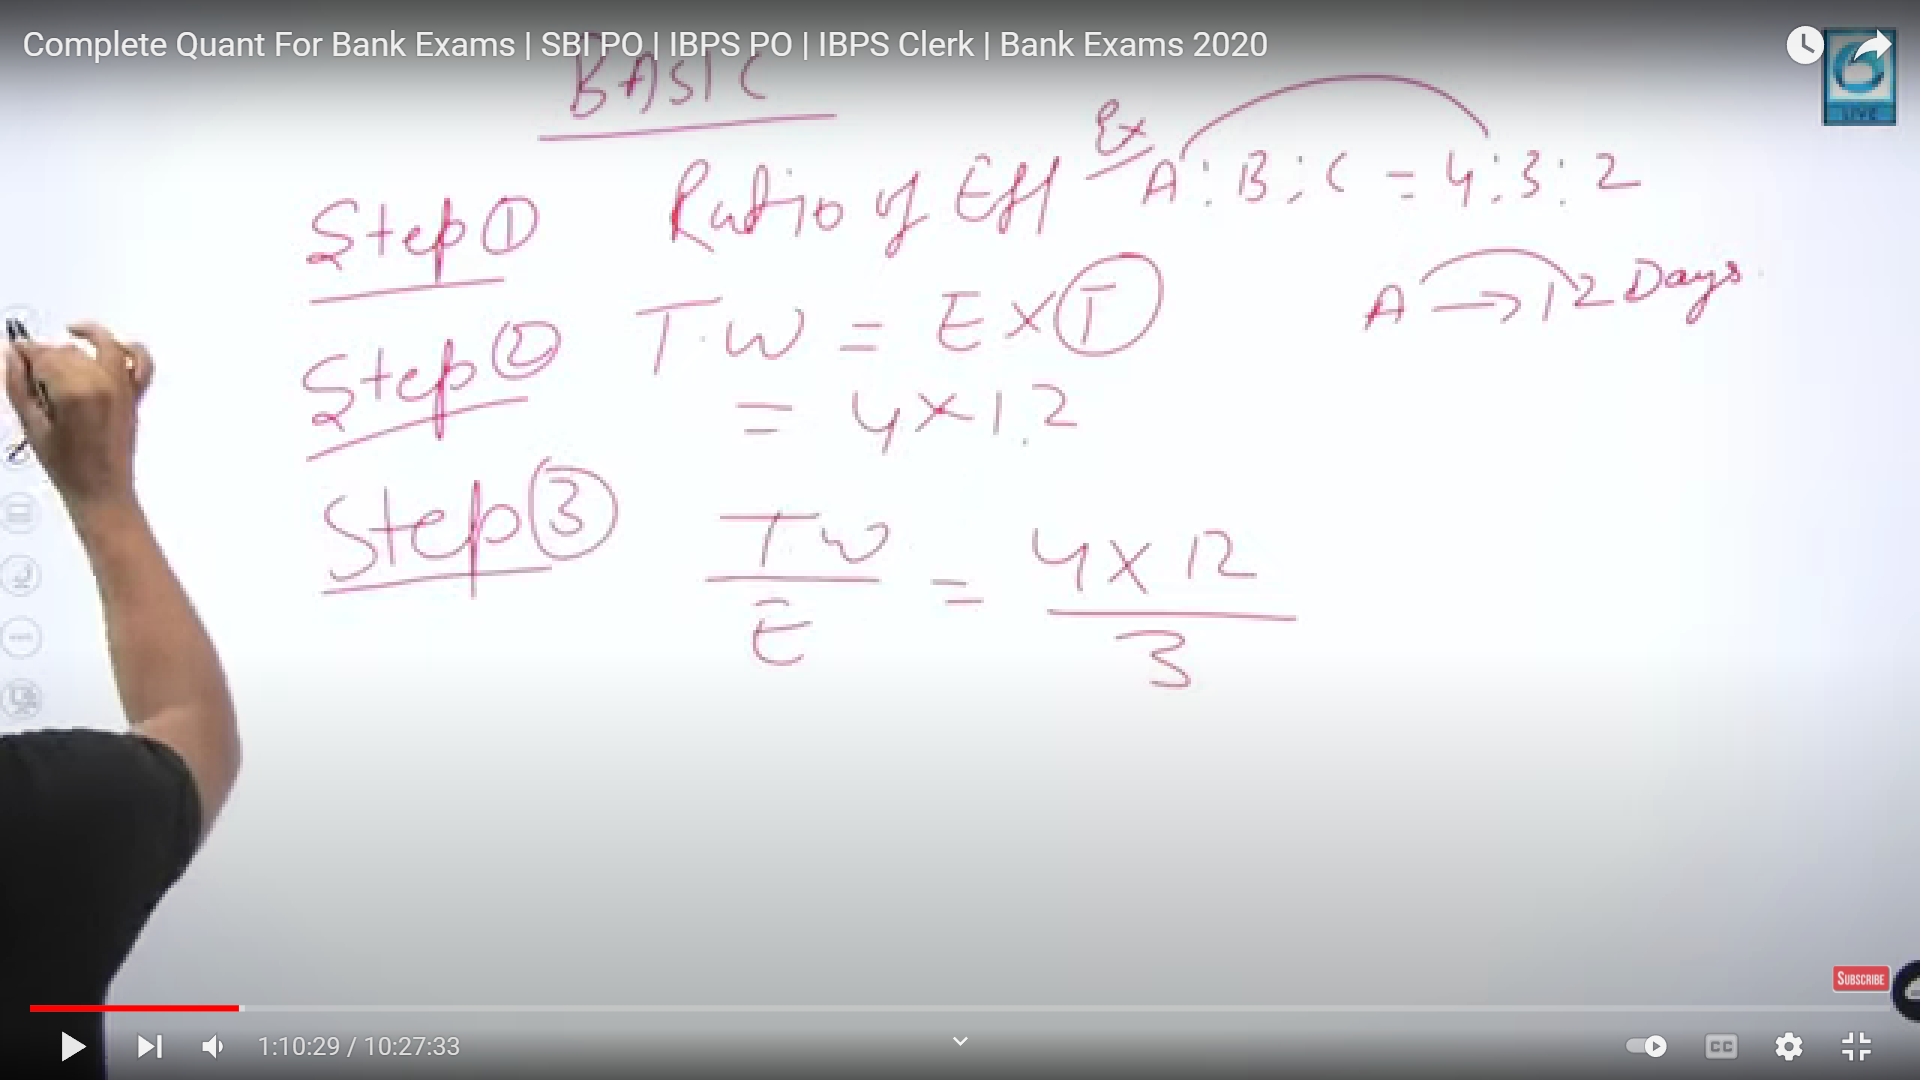 Complete Quant For Bank Exams | SBI PO | IBPS PO | IBPS Clerk | Bank Exams 2020
BASIC
LIVE
Step ① Ratio of Eff Ex A : B : C = 4 : 3 : 2
A → 12 Days
Step ② T.W = E × T
= 4 × 12
Step ③ TW / E = 4 × 12 / 3
SUBSCRIBE
1:10:29 / 10:27:33
CC